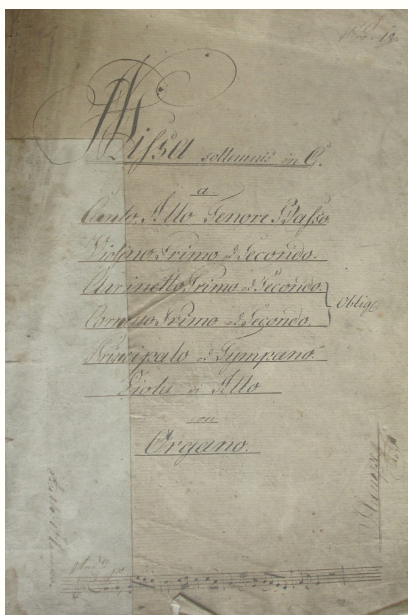 Missa sollemnis in C.
a
Canto, Alto Tenore Basso,
Violino Primo et Secondo.
Clarinetto Primo et Secondo.
Cornuo Primo et Secondo.
Oblig.
Principalo et Tympano.
Viola di Alto
con
Organo.